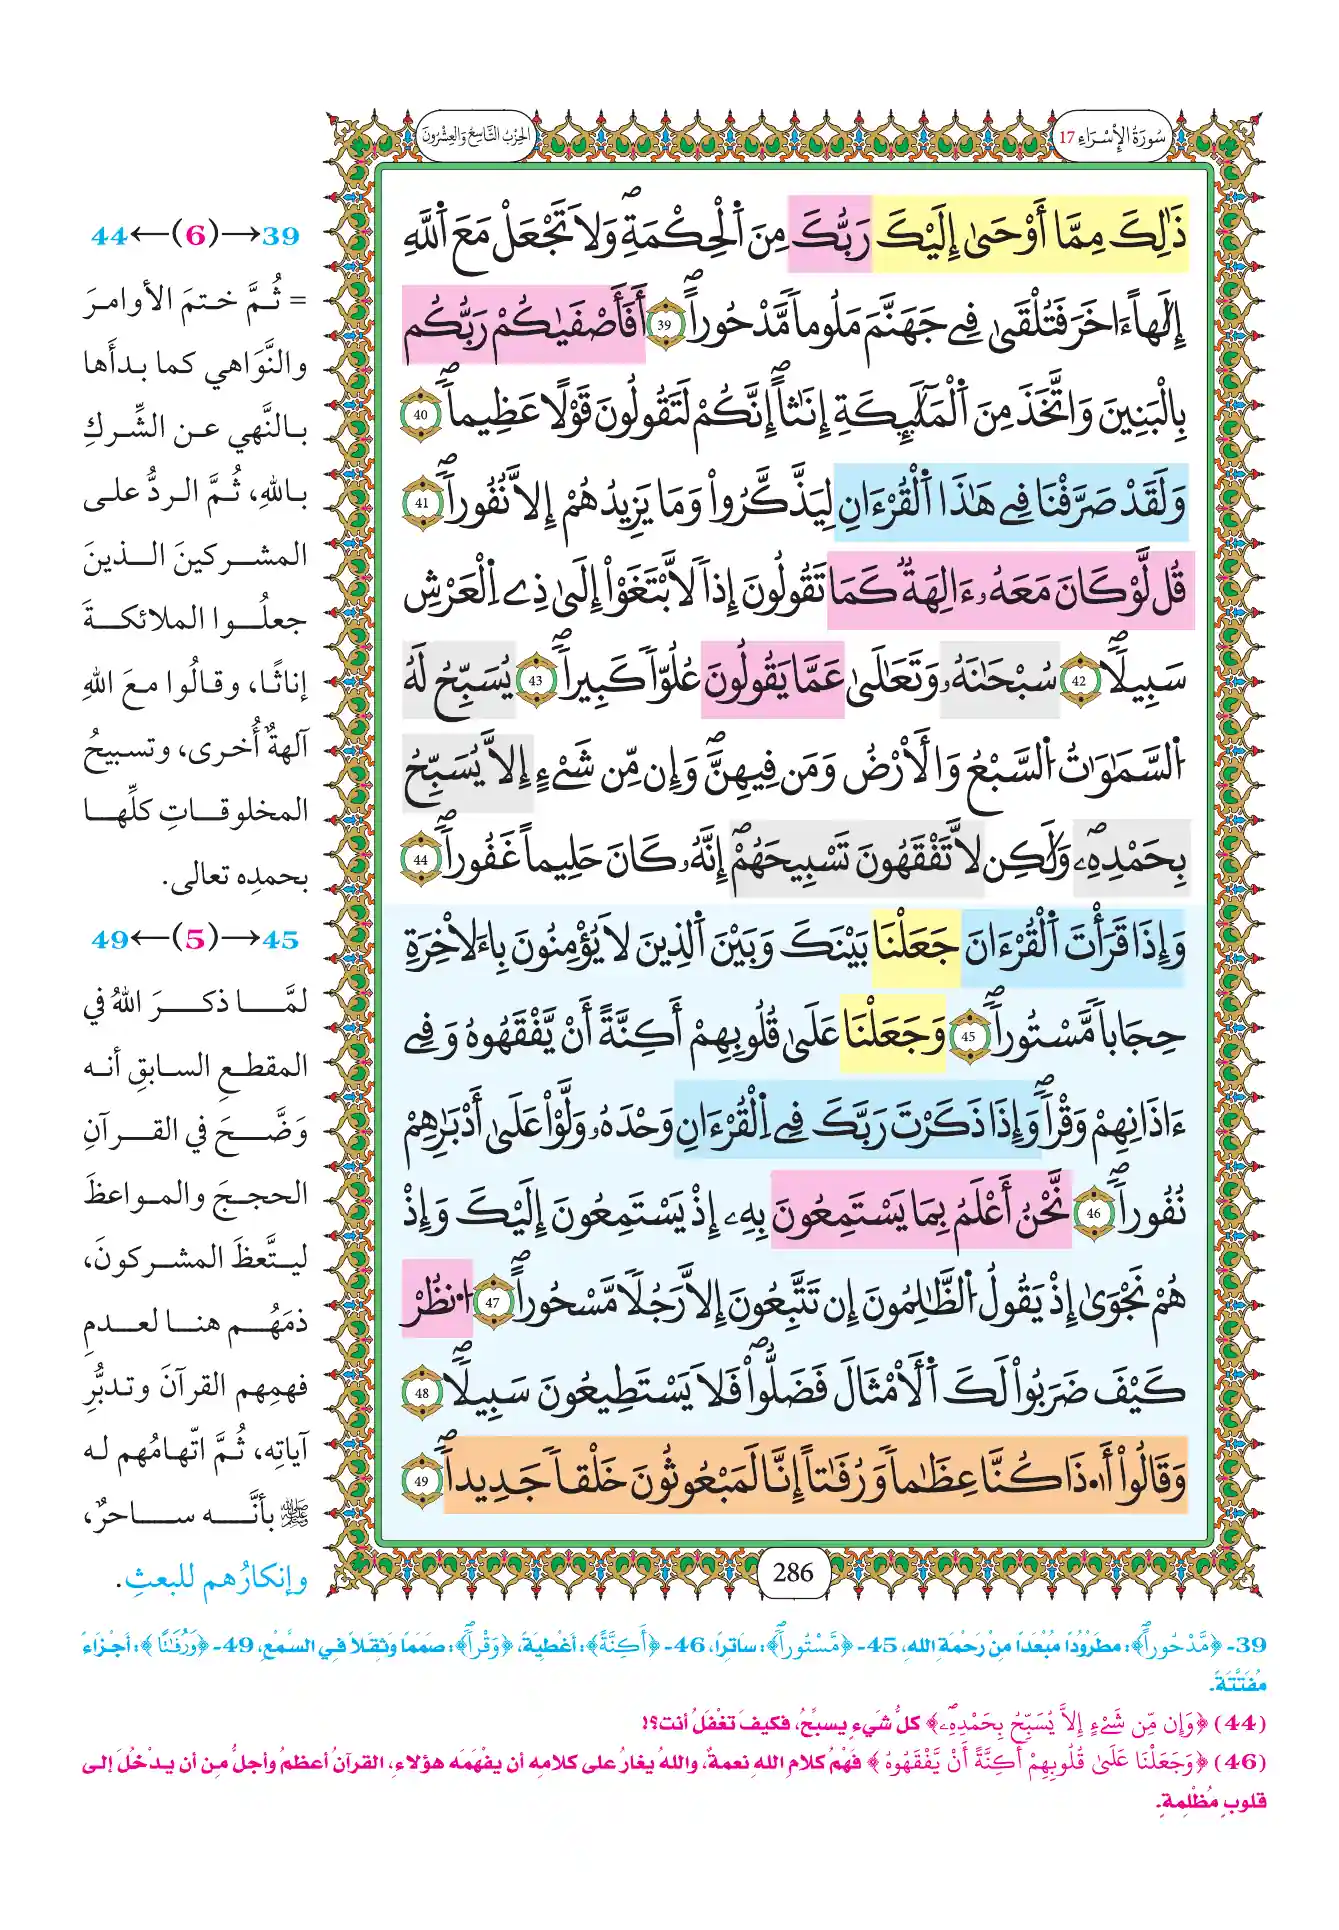 سُورَةُ الإِسْرَاء 17
الحِزْبُ التَّاسِعُ وَالعِشْرُونَ
ذَٰلِكَ مِمَّا أَوْحَىٰ إِلَيْكَ رَبُّكَ مِنَ اَ۬لْحِكْمَةِۖ وَلَا تَجْعَلْ مَعَ اَ۬للَّهِ
إِلَٰهاً ءَاخَرَ فَتُلْقَىٰ فِے جَهَنَّمَ مَلُوماٗ مَّدْحُوراًۖ 39 أَفَأَصْفَيٰكُمْ رَبُّكُم
بِالْبَنِينَ وَاتَّخَذَ مِنَ اَ۬لْمَلَٰٓئِكَةِ إِنَٰثاًۖ إِنَّكُمْ لَتَقُولُونَ قَوْلًا عَظِيماٗۖ 40
وَلَقَدْ صَرَّفْنَا فِے هَٰذَا اَ۬لْقُرْءَانِ لِيَذَّكَّرُواْ وَمَا يَزِيدُهُمْ إِلَّا نُفُوراٗۖ 41
قُل لَّوْ كَانَ مَعَهُۥ ءَالِهَةٞ كَمَا تَقُولُونَ إِذاٗ لَّابْتَغَوْاْ إِلَىٰ ذِے اِ۬لْعَرْشِ
سَبِيلاٗۖ 42 سُبْحَٰنَهُۥ وَتَعَٰلَىٰ عَمَّا يَقُولُونَ عُلُوّاٗ كَبِيراٗۖ 43 يُسَبِّحُ لَهُ
اُ۬لسَّمَٰوَٰتُ اُ۬لسَّبْعُ وَالْأَرْضُ وَمَن فِيهِنَّۖ وَإِن مِّن شَےْءٍ إِلَّا يُسَبِّحُ
بِحَمْدِهِۦۖ وَلَٰكِن لَّا تَفْقَهُونَ تَسْبِيحَهُمْۖ إِنَّهُۥ كَانَ حَلِيماً غَفُوراٗۖ 44
وَإِذَا قَرَأْتَ اَ۬لْقُرْءَانَ جَعَلْنَا بَيْنَكَ وَبَيْنَ اَ۬لذِينَ لَا يُؤْمِنُونَ بِالْأٓخِرَةِ
حِجَاباٗ مَّسْتُوراٗۖ 45 وَجَعَلْنَا عَلَىٰ قُلُوبِهِمْ أَكِنَّةً أَنْ يَّفْقَهُوهُ وَفِے
ءَاذَانِهِمْ وَقْراٗۖ وَإِذَا ذَكَرْتَ رَبَّكَ فِے اِ۬لْقُرْءَانِ وَحْدَهُۥ وَلَّوْاْ عَلَىٰ أَدْبَٰرِهِمْ
نُفُوراٗۖ 46 نَّحْنُ أَعْلَمُ بِمَا يَسْتَمِعُونَ بِهِۦٓ إِذْ يَسْتَمِعُونَ إِلَيْكَ وَإِذْ
هُمْ نَجْوَىٰٓ إِذْ يَقُولُ اُ۬لظَّٰلِمُونَ إِن تَتَّبِعُونَ إِلَّا رَجُلاٗ مَّسْحُوراًۖ 47 اُ۟نظُرْ
كَيْفَ ضَرَبُواْ لَكَ اَ۬لْأَمْثَالَ فَضَلُّواْۖ فَلَا يَسْتَطِيعُونَ سَبِيلاٗۖ 48
وَقَالُوٓاْ أَ.ذَا كُنَّا عِظَٰماٗ وَرُفَٰتاً إِنَّا لَمَبْعُوثُونَ خَلْقاٗ جَدِيداٗۖ 49
286
39→(6)←44
= ثُمَّ ختمَ الأوامرَ
والنَّوَاهي كما بدأَها
بالنَّهي عن الشِّركِ
باللهِ، ثُمَّ الردُّ على
المشركينَ الذينَ
جعلُوا الملائكةَ
إناثًا، وقالُوا معَ اللهِ
آلهةٌ أُخرى، وتسبيحُ
المخلوقاتِ كلِّها
بحمدِه تعالى.
45→(5)←49
لمَّا ذكرَ اللهُ في
المقطعِ السابقِ أنه
وَضَّحَ في القرآنِ
الحججَ والمواعظَ
ليتَّعظَ المشركونَ،
ذمَهُم هنا لعدمِ
فهمِهم القرآنَ وتدبُّرِ
آياتِه، ثُمَّ اتّهامُهم له
ﷺ بأنَّه ساحرٌ،
وإنكارُهم للبعثِ.
39- ﴿مَّدْحُوراًۖ﴾: مطرُودًا مُبْعَدًا مِنْ رَحْمَةِ اللهِ، 45- ﴿مَّسْتُوراٗۖ﴾: سَاتِرًا، 46- ﴿أَكِنَّةً﴾: أغْطِيَةً، ﴿وَقْراٗۖ﴾: صَمَمًا وَثِقَلًا في السَّمْعِ، 49- ﴿وَرُفَٰتًا﴾: أجْزَاءً
مُفَتَّتَةً.
(44) ﴿وَإِن مِّن شَےْءٍ إِلَّا يُسَبِّحُ بِحَمْدِهِۦۖ﴾ كلُّ شَيءٍ يسبِّحُ، فكيفَ تغْفَلُ أنت؟!
(46) ﴿وَجَعَلْنَا عَلَىٰ قُلُوبِهِمْ أَكِنَّةً أَنْ يَّفْقَهُوهُ﴾ فَهْمُ كلامِ اللهِ نعمةٌ، واللهُ يغارُ على كلامِه أن يفْهَمَه هؤلاءِ، القرآنُ أعظمُ وأجلُّ من أن يدْخُلَ إلى
قلوبٍ مُظْلِمةٍ.